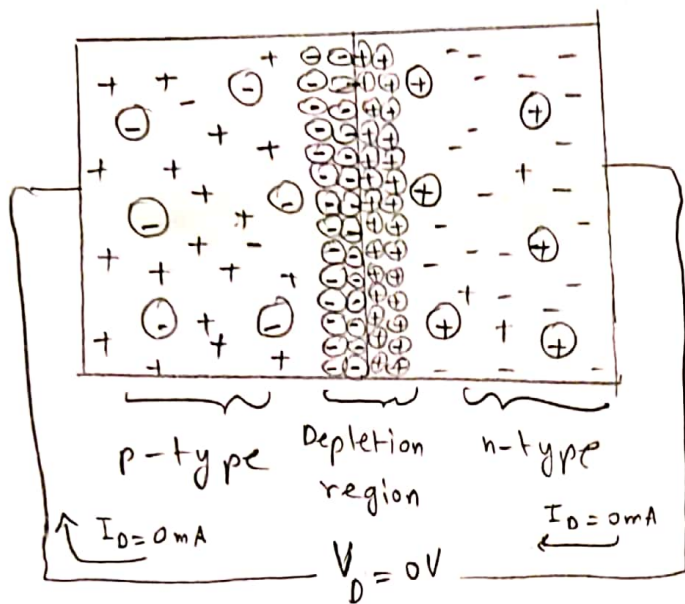 p-type
Depletion
region
n-type
I_D = 0mA
I_D = 0mA
V_D = 0V